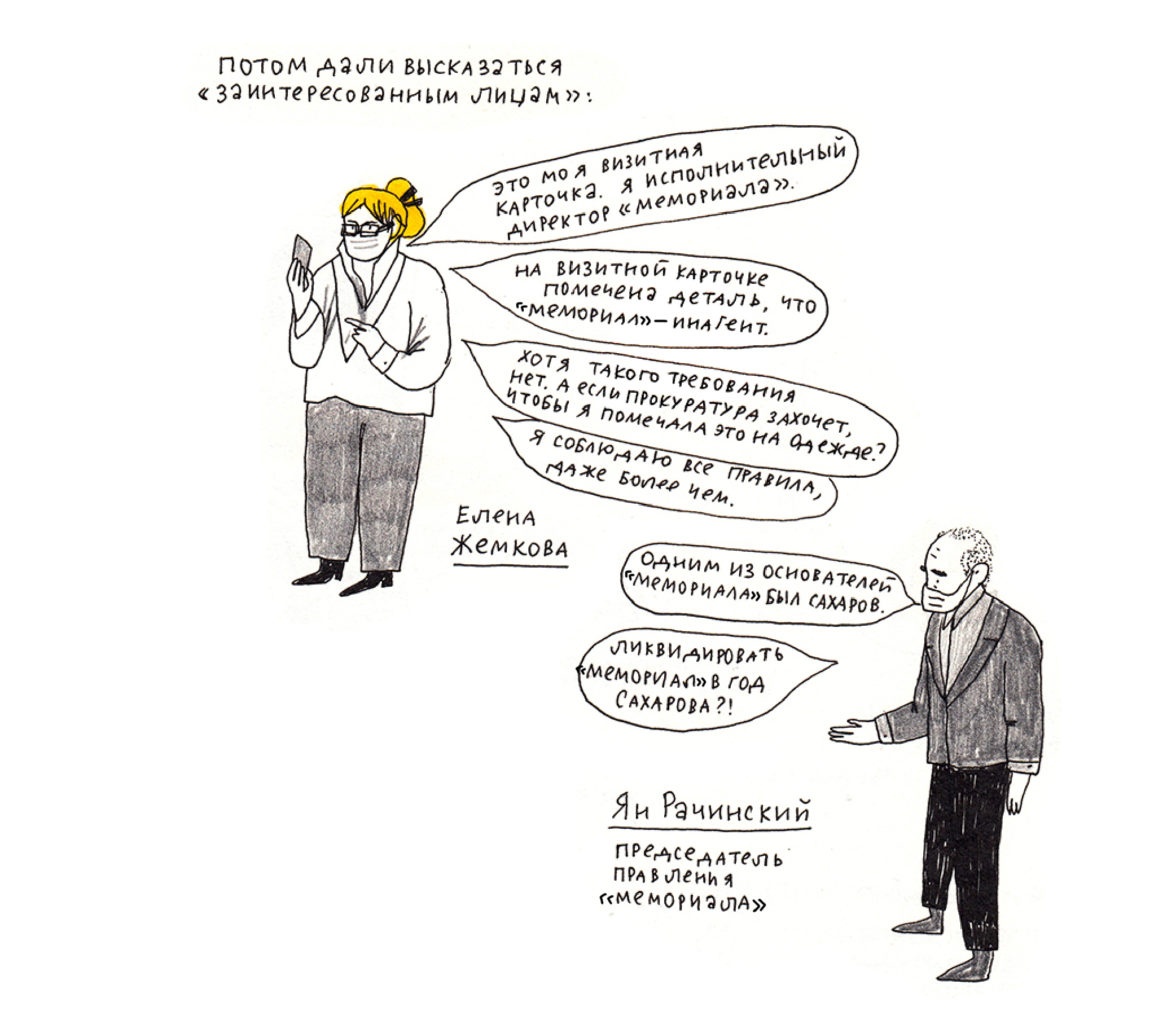 ПОТОМ ДАЛИ ВЫСКАЗАТЬСЯ
«ЗАИНТЕРЕСОВАННЫМ ЛИЦАМ»:
ЭТО МОЯ ВИЗИТНАЯ
КАРТОЧКА. Я ИСПОЛНИТЕЛЬНЫЙ
ДИРЕКТОР «МЕМОРИАЛА».
НА ВИЗИТНОЙ КАРТОЧКЕ
ПОМЕЧЕНА ДЕТАЛЬ, ЧТО
«МЕМОРИАЛ» – ИНАГЕНТ.
ХОТЯ ТАКОГО ТРЕБОВАНИЯ
НЕТ. А ЕСЛИ ПРОКУРАТУРА ЗАХОЧЕТ,
ЧТОБЫ Я ПОМЕЧАЛА ЭТО НА ОДЕЖДЕ?
Я СОБЛЮДАЮ ВСЕ ПРАВИЛА,
ДАЖЕ БОЛЕЕ ЧЕМ.
ЕЛЕНА
ЖЕМКОВА
ОДНИМ ИЗ ОСНОВАТЕЛЕЙ
«МЕМОРИАЛА» БЫЛ САХАРОВ.
ЛИКВИДИРОВАТЬ
«МЕМОРИАЛ» В ГОД
САХАРОВА?!
ЯН РАЧИНСКИЙ
ПРЕДСЕДАТЕЛЬ
ПРАВЛЕНИЯ
«МЕМОРИАЛА»